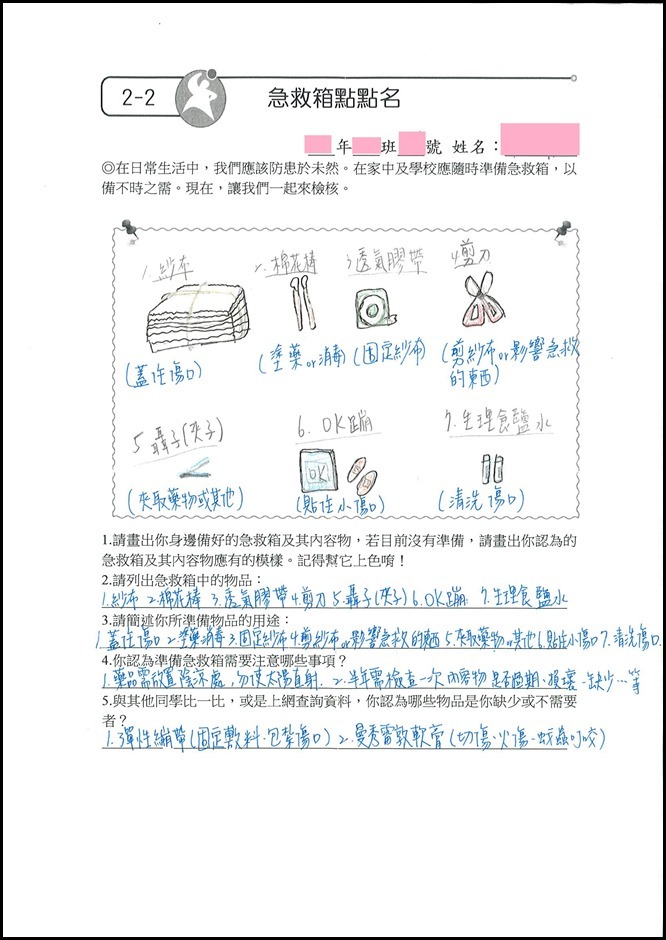 2-2 急救箱點點名
年 班 號 姓名：
◎在日常生活中，我們應該防患於未然。在家中及學校應隨時準備急救箱，以
備不時之需。現在，讓我們一起來檢核。
1.紗布 2.棉花棒 3透氣膠帶 4剪刀
(蓋住傷口) (塗藥or消毒) (固定紗布) (剪紗布or影響急救
的東西)
5聶子(夾子) 6.OK蹦 7.生理食鹽水
(夾取藥物或其他) OK (貼住小傷口) (清洗傷口)
1.請畫出你身邊備好的急救箱及其內容物，若目前沒有準備，請畫出你認為的
急救箱及其內容物應有的模樣。記得幫它上色唷！
2.請列出急救箱中的物品：
1.紗布 2.棉花棒 3.透氣膠帶4.剪刀 5.聶子(夾子)6.OK蹦 7.生理食鹽水
3.請簡述你所準備物品的用途：
1.蓋住傷口 2.塗藥消毒 3.固定紗布4剪紗布or影響急救的東西 5.夾取藥物or其他6.貼住小傷口7.清洗傷口
4.你認為準備急救箱需要注意哪些事項？
1.藥品需放置陰涼處,勿使太陽直射. 2.半年需檢查一次內容物是否過期、損壞、缺少…等
5.與其他同學比一比，或是上網查詢資料，你認為哪些物品是你缺少或不需要
者？
1.彈性繃帶(固定敷料、包紮傷口) 2.曼秀雷敦軟膏(切傷、火傷、蚊蟲叮咬)